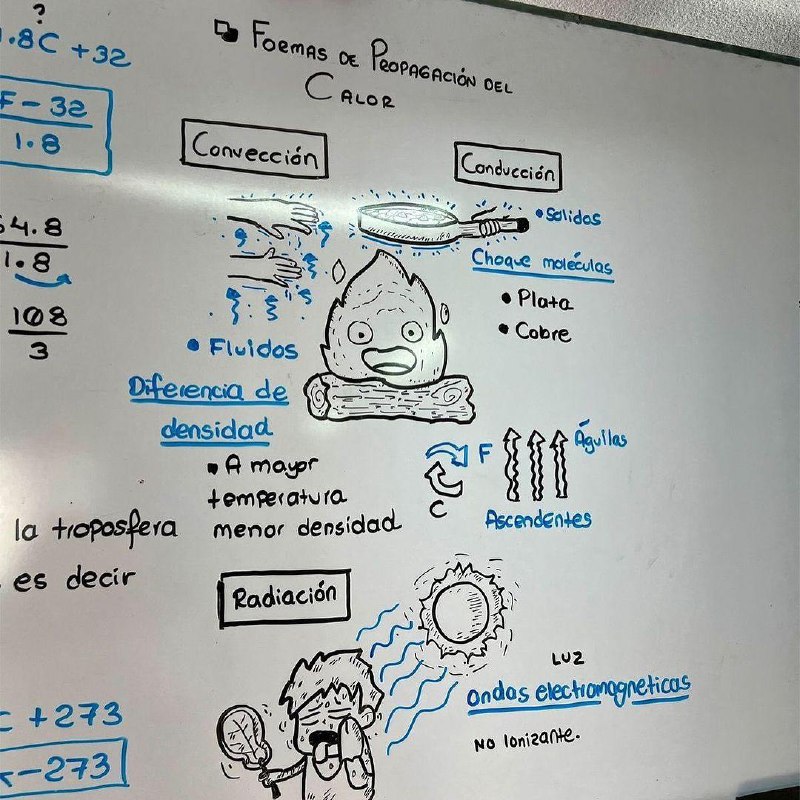 ?
1.8C + 32
F - 32
1.8
64.8
1.8
108
3
la troposfera
es decir
C + 273
K - 273
Formas de Propagación del
Calor
Convección
• Fluidos
Diferencia de
densidad
• A mayor
temperatura
menor densidad
Conducción
• Solidos
Choque moléculas
• Plata
• Cobre
F
C
Águilas
Ascendentes
Radiación
Luz
Ondas electromagneticas
No Ionizante.